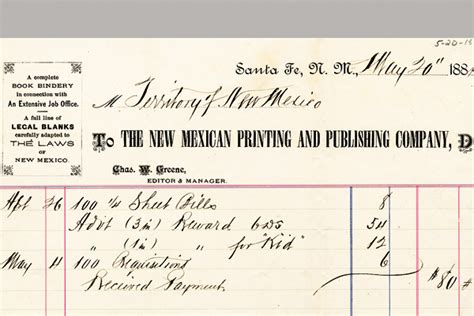 5-20-18
Santa Fe, N. M., May 20" 188
A complete
BOOK BINDERY
in connection with
An Extensive Job Office.
A full line of
LEGAL BLANKS
carefully adapted to
THE LAWS
OF
NEW MEXICO.
M Territory of New Mexico
To THE NEW MEXICAN PRINTING AND PUBLISHING COMPANY, D
Chas. W. Greene,
EDITOR & MANAGER.
Apl 26 100 1/4 Sheet Bills 8
Advt (3 in) Reward 6 54
" (1 in) " for "Kid" 12
May 4 100 Requisitions 6
Received Payment $80